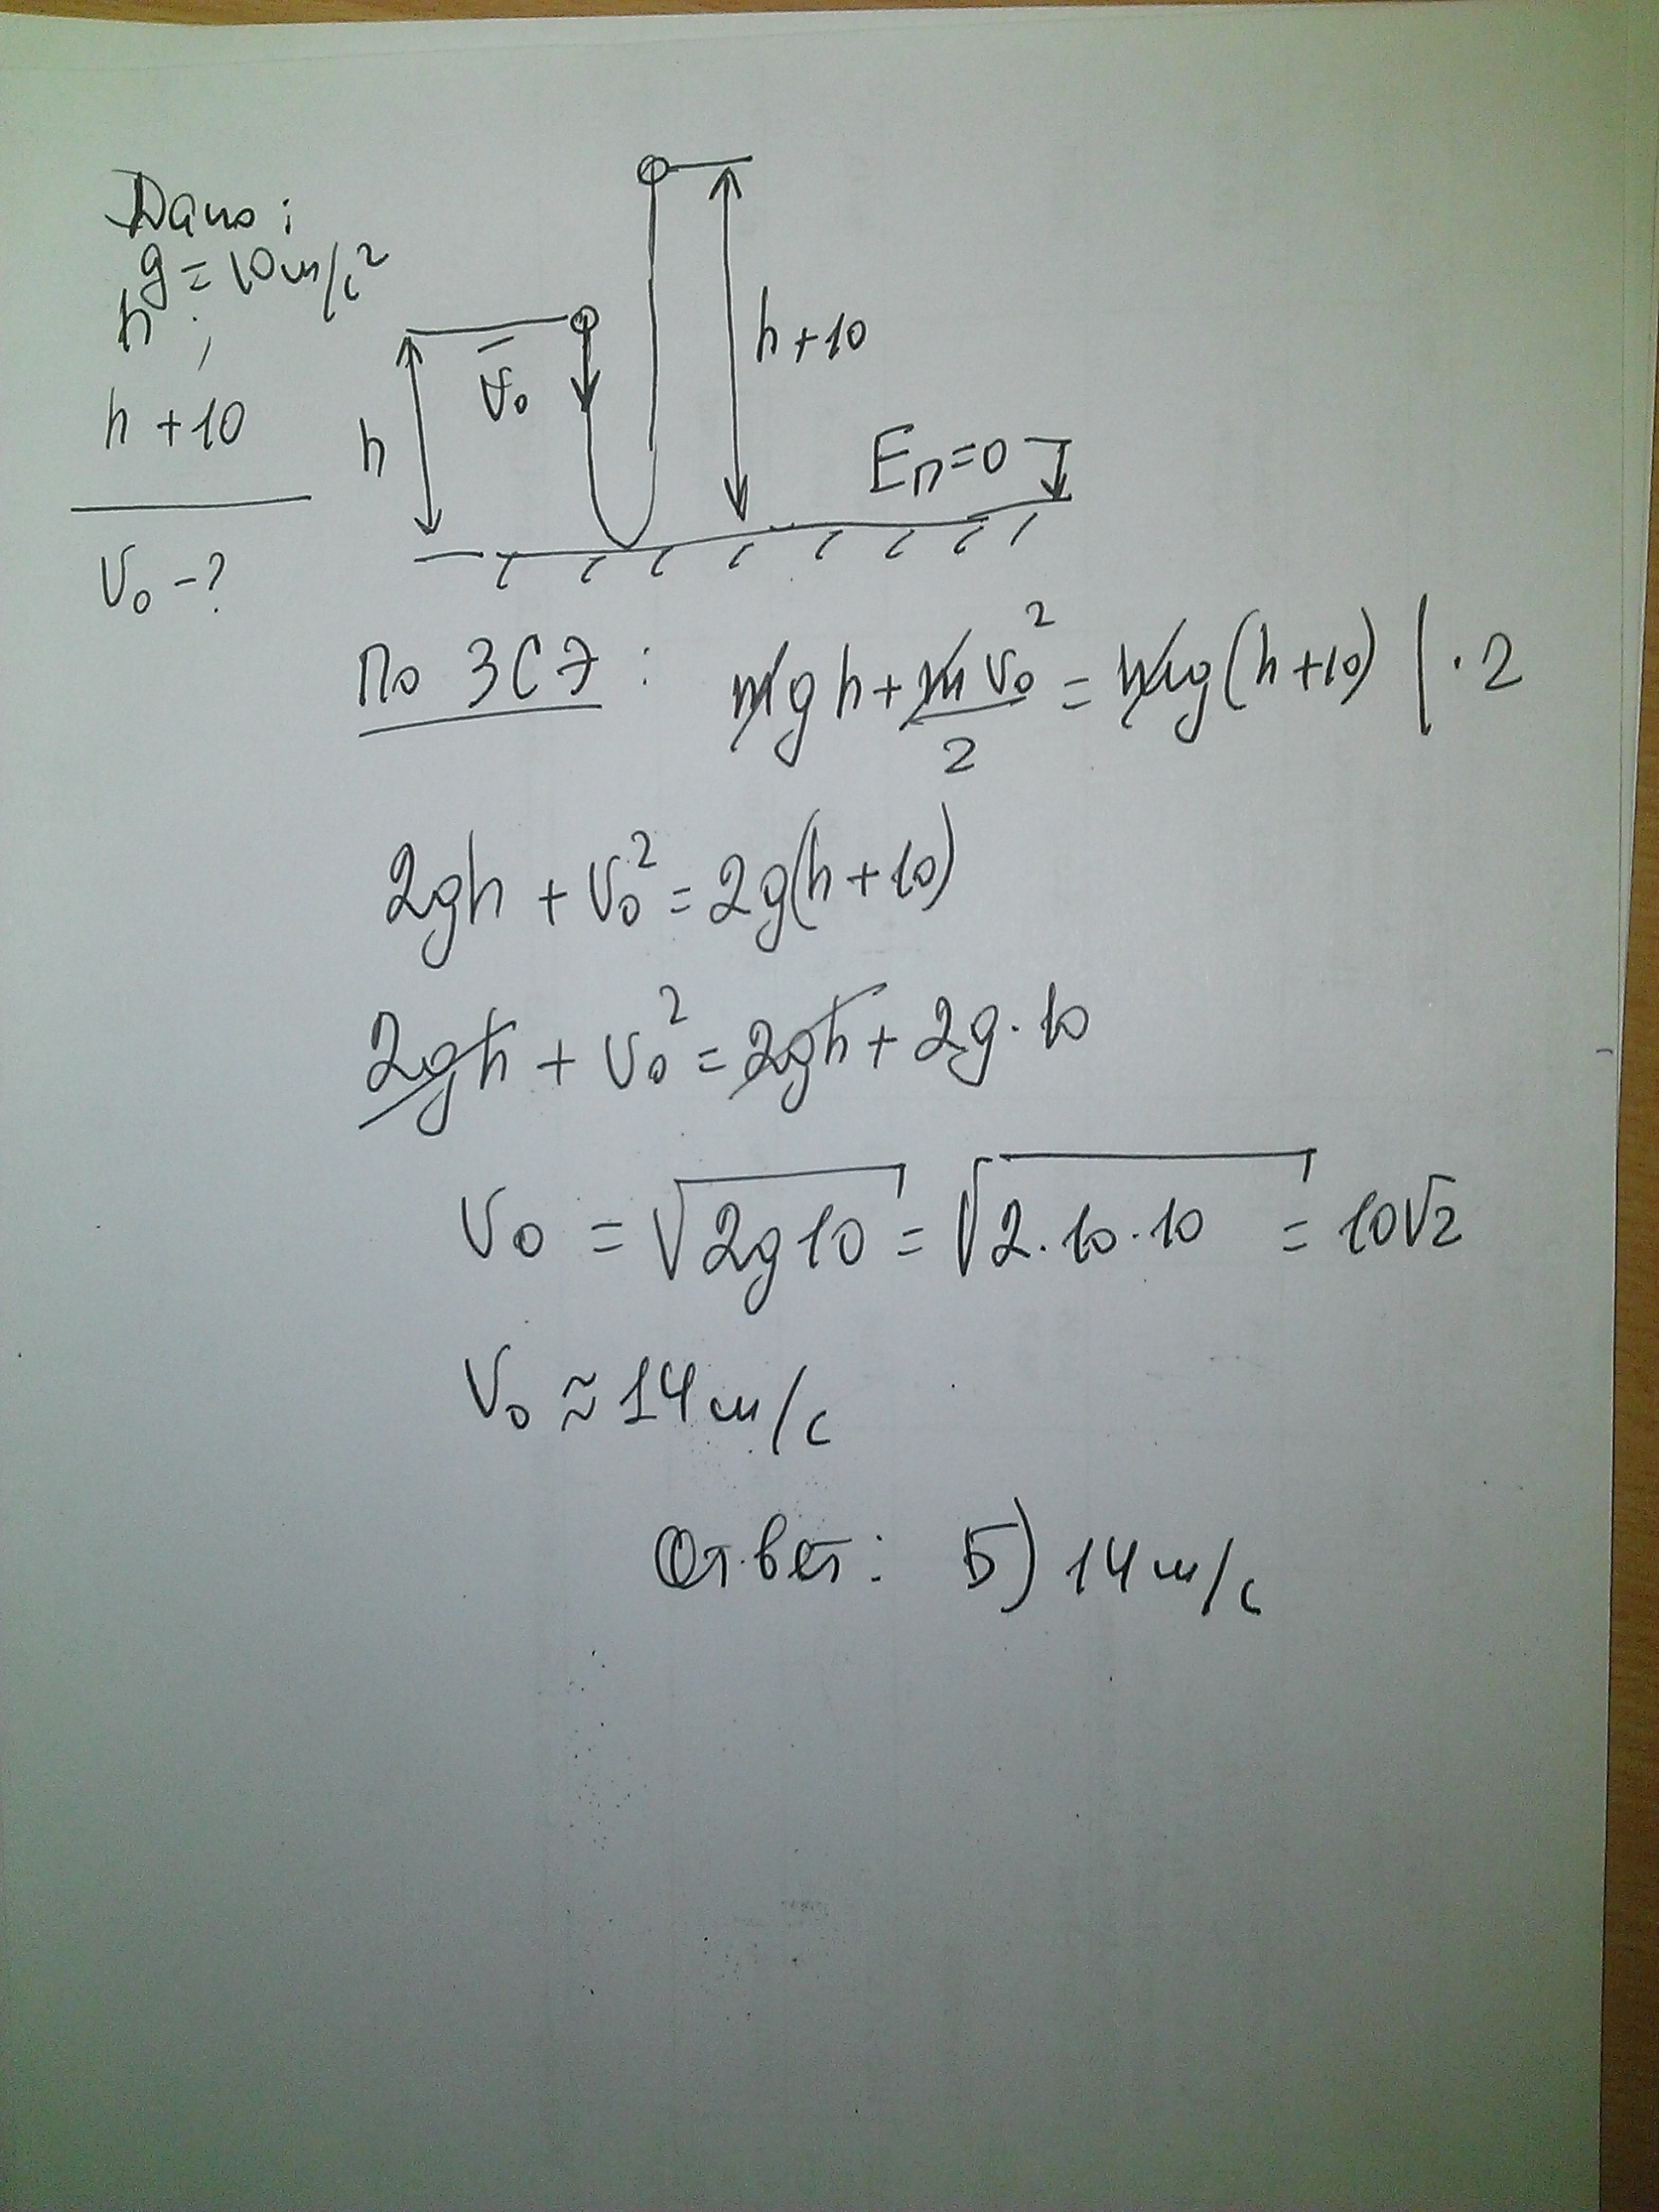 Дано:
g = 10 м/с²
h ;
h + 10
V₀ - ?
V₀
h
h + 10
Eп = 0
По ЗСЭ : mgh + mV₀²/2 = mg(h + 10) | · 2
2gh + V₀² = 2g(h + 10)
2gh + V₀² = 2gh + 2g · 10
V₀ = √2g10 = √2 · 10 · 10 = 10√2
V₀ ≈ 14 м/с
Ответ: Б) 14 м/с